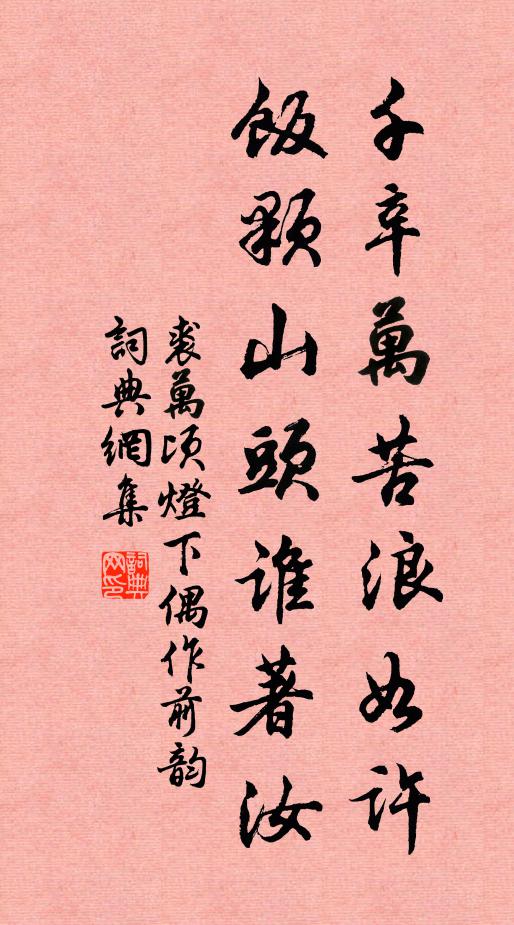 千辛萬苦浪如許
飯顆山頭誰著汝
裘萬頃燈下偶作前韵
詞典網集
詞典網印